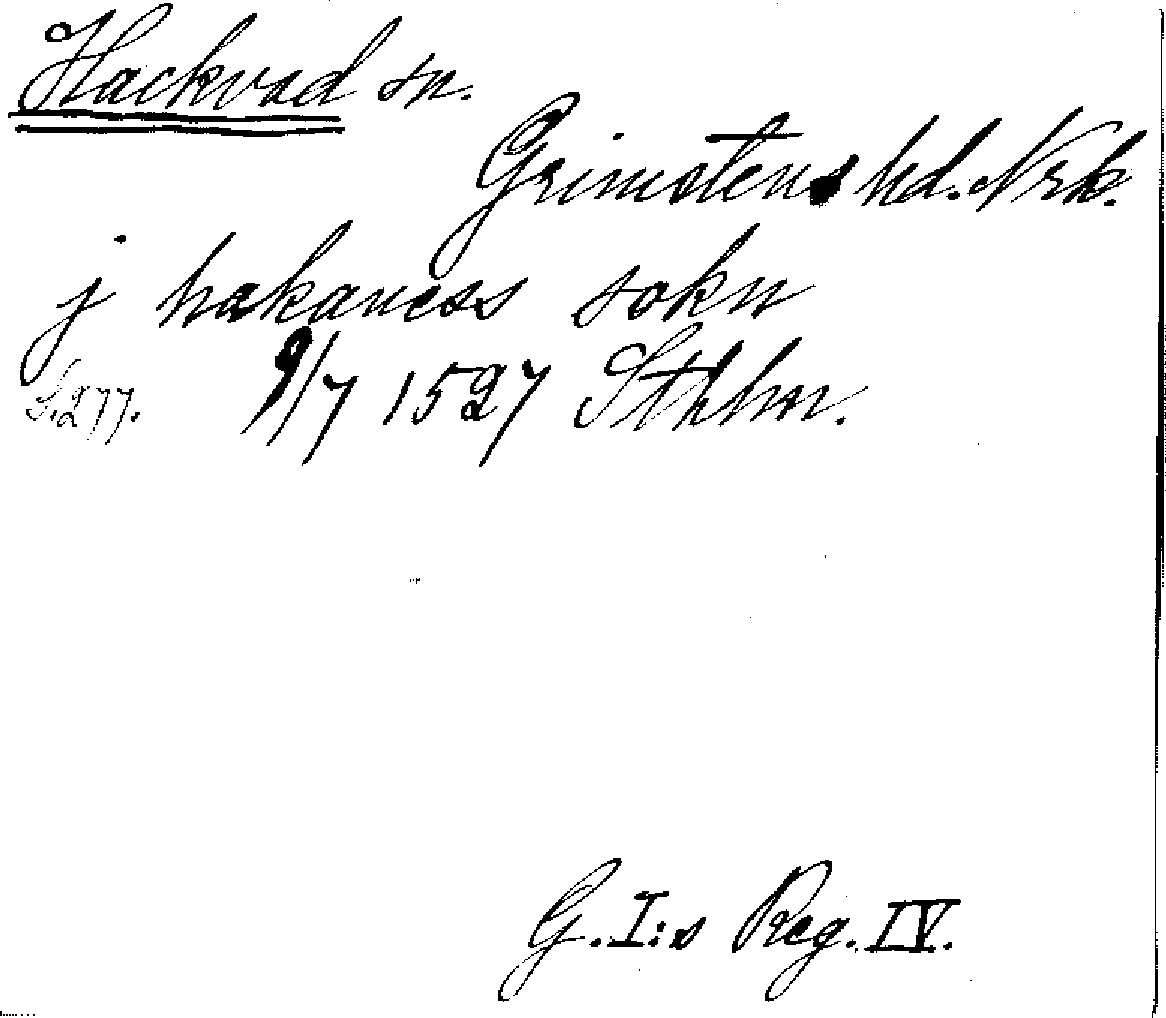 Hackvad sn.
Grimstens hd. Nrk.
j hakaness sokn
S. 277. 9/7 1527 Sthlm.
G. I:s Reg. IV.